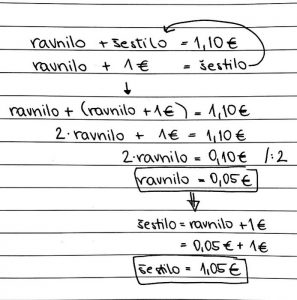 ravnilo + šestilo = 1,10€
ravnilo + 1€ = šestilo
ravnilo + (ravnilo + 1€) = 1,10€
2·ravnilo + 1€ = 1,10€
2·ravnilo = 0,10€ /:2
ravnilo = 0,05€
šestilo = ravnilo + 1€
= 0,05€ + 1€
šestilo = 1,05€